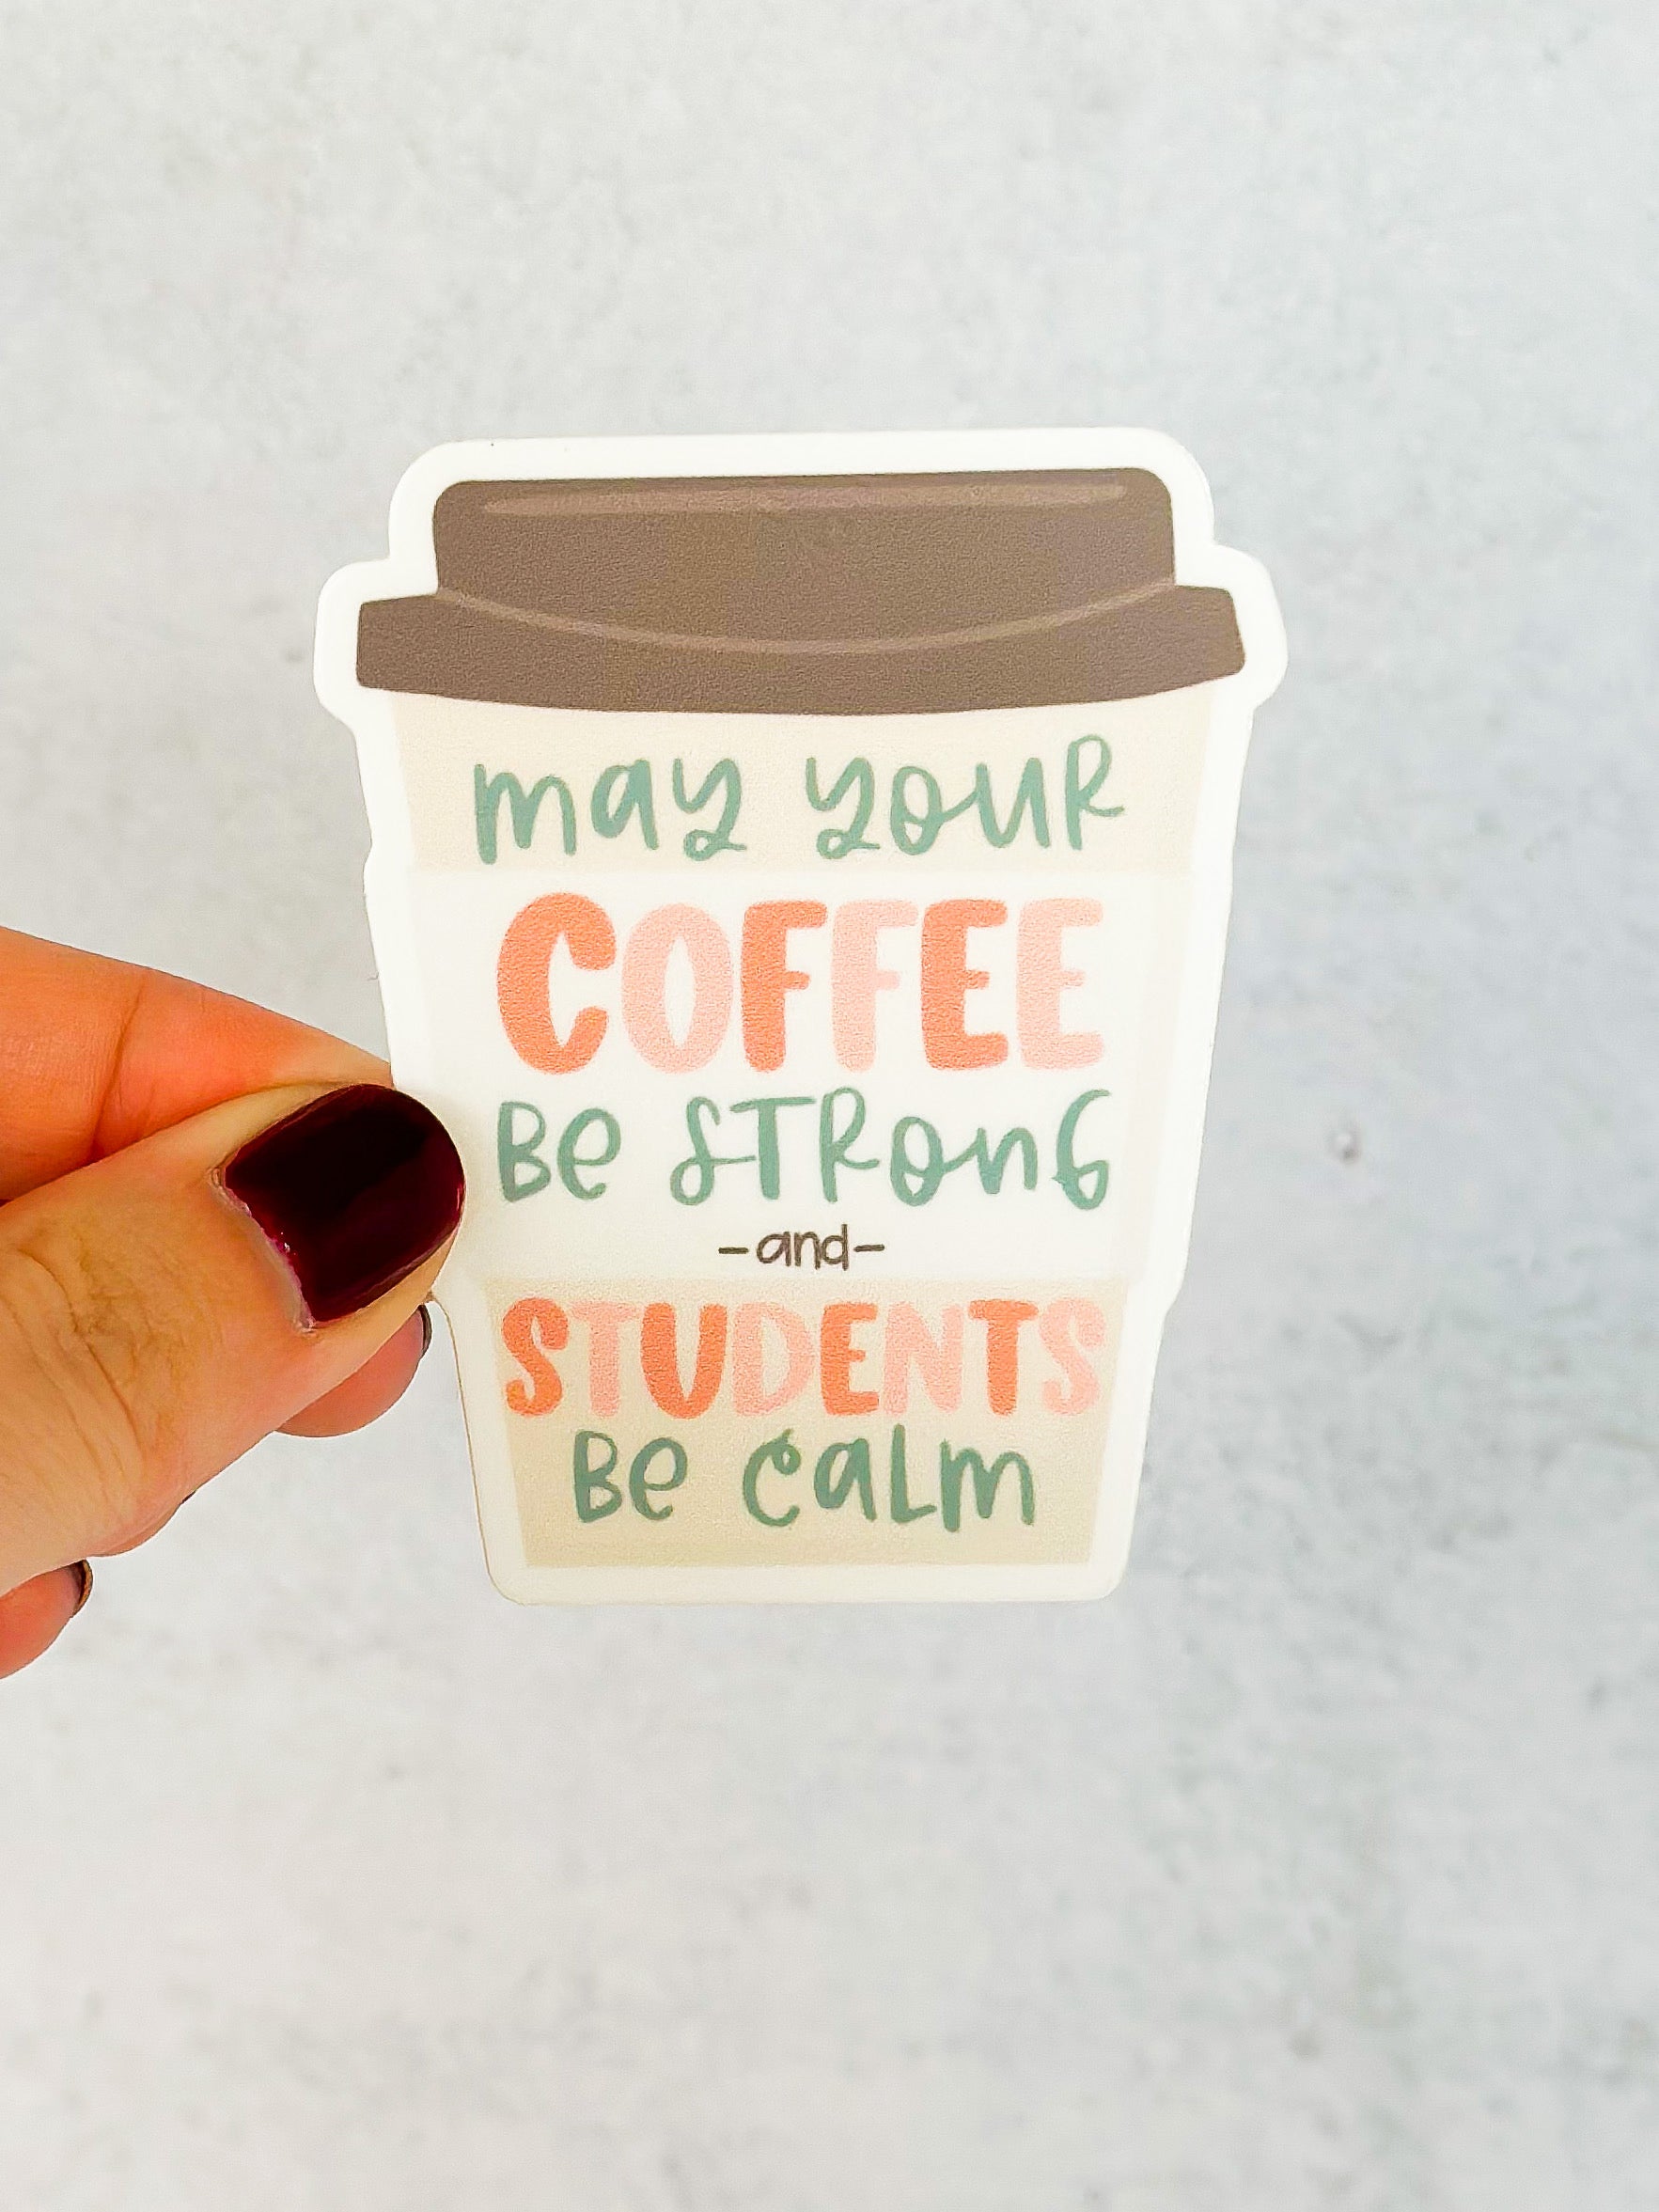 may your
COFFEE
Be STRonG
-and-
STUDENTS
Be CaLm